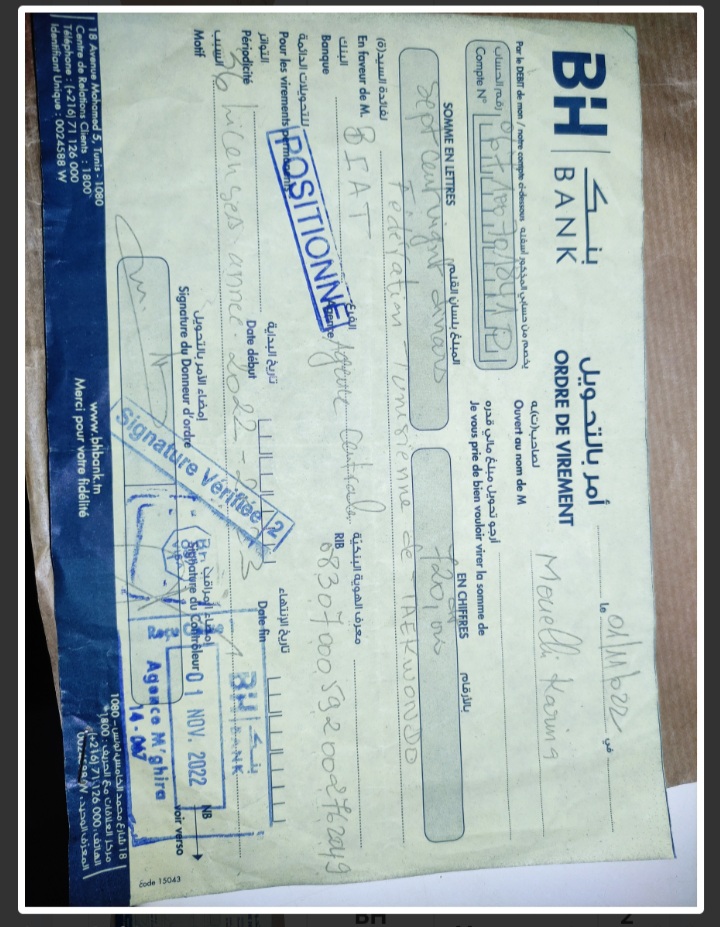 BH | بنك
BANK
أمر بالتحويل
ORDRE DE VIREMENT
Le 01/11/2022 في
يخصم من حسابي المذكور أسفله
Par le DEBIT de mon / notre compte ci-dessous
رقم الحساب
Compte N°
لصاحب(ت)ه
Ouvert au nom de M Mouelhi Karima
أرجو تحويل مبلغ مالي قدره
Je vous prie de bien vouloir virer la somme de
SOMME EN LETTRES المبلغ بلسان القلم
EN CHIFFRES بالأرقام
Sept cent vingt dinars
لفائدة السيد(ة)
En faveur de M. Fédération Tunisienne de TAEKWONDO
البنك
Banque BIAT
الفرع
Agence Agence Centrale
معرف الهوية البنكية
RIB
للتحويلات الدائمة
Pour les virements permanents
POSITIONNE
التواتر
Périodicité
تاريخ البداية
Date début
تاريخ الإنتهاء
Date fin
السبب
Motif
إمضاء الأمر بالتحويل
Signature du Donneur d'ordre
Signature Vérifiée 2
إمضاء المراقب
Signature du Contrôleur
BH | بنك
BANK
01 NOV. 2022
Agence M'ghira
NB
voir verso
code 15043
18 Avenue Mohamed 5, Tunis - 1080
Centre de Relations Clients : 1800
Téléphone : (+216) 71 126 000
Identifiant Unique : 0024588 W
www.bhbank.tn
Merci pour votre fidélité
18 شارع محمد الخامس تونس - 1080
مركز العلاقات مع الحريف : 1800
الهاتف : 000 126 71 (216+)